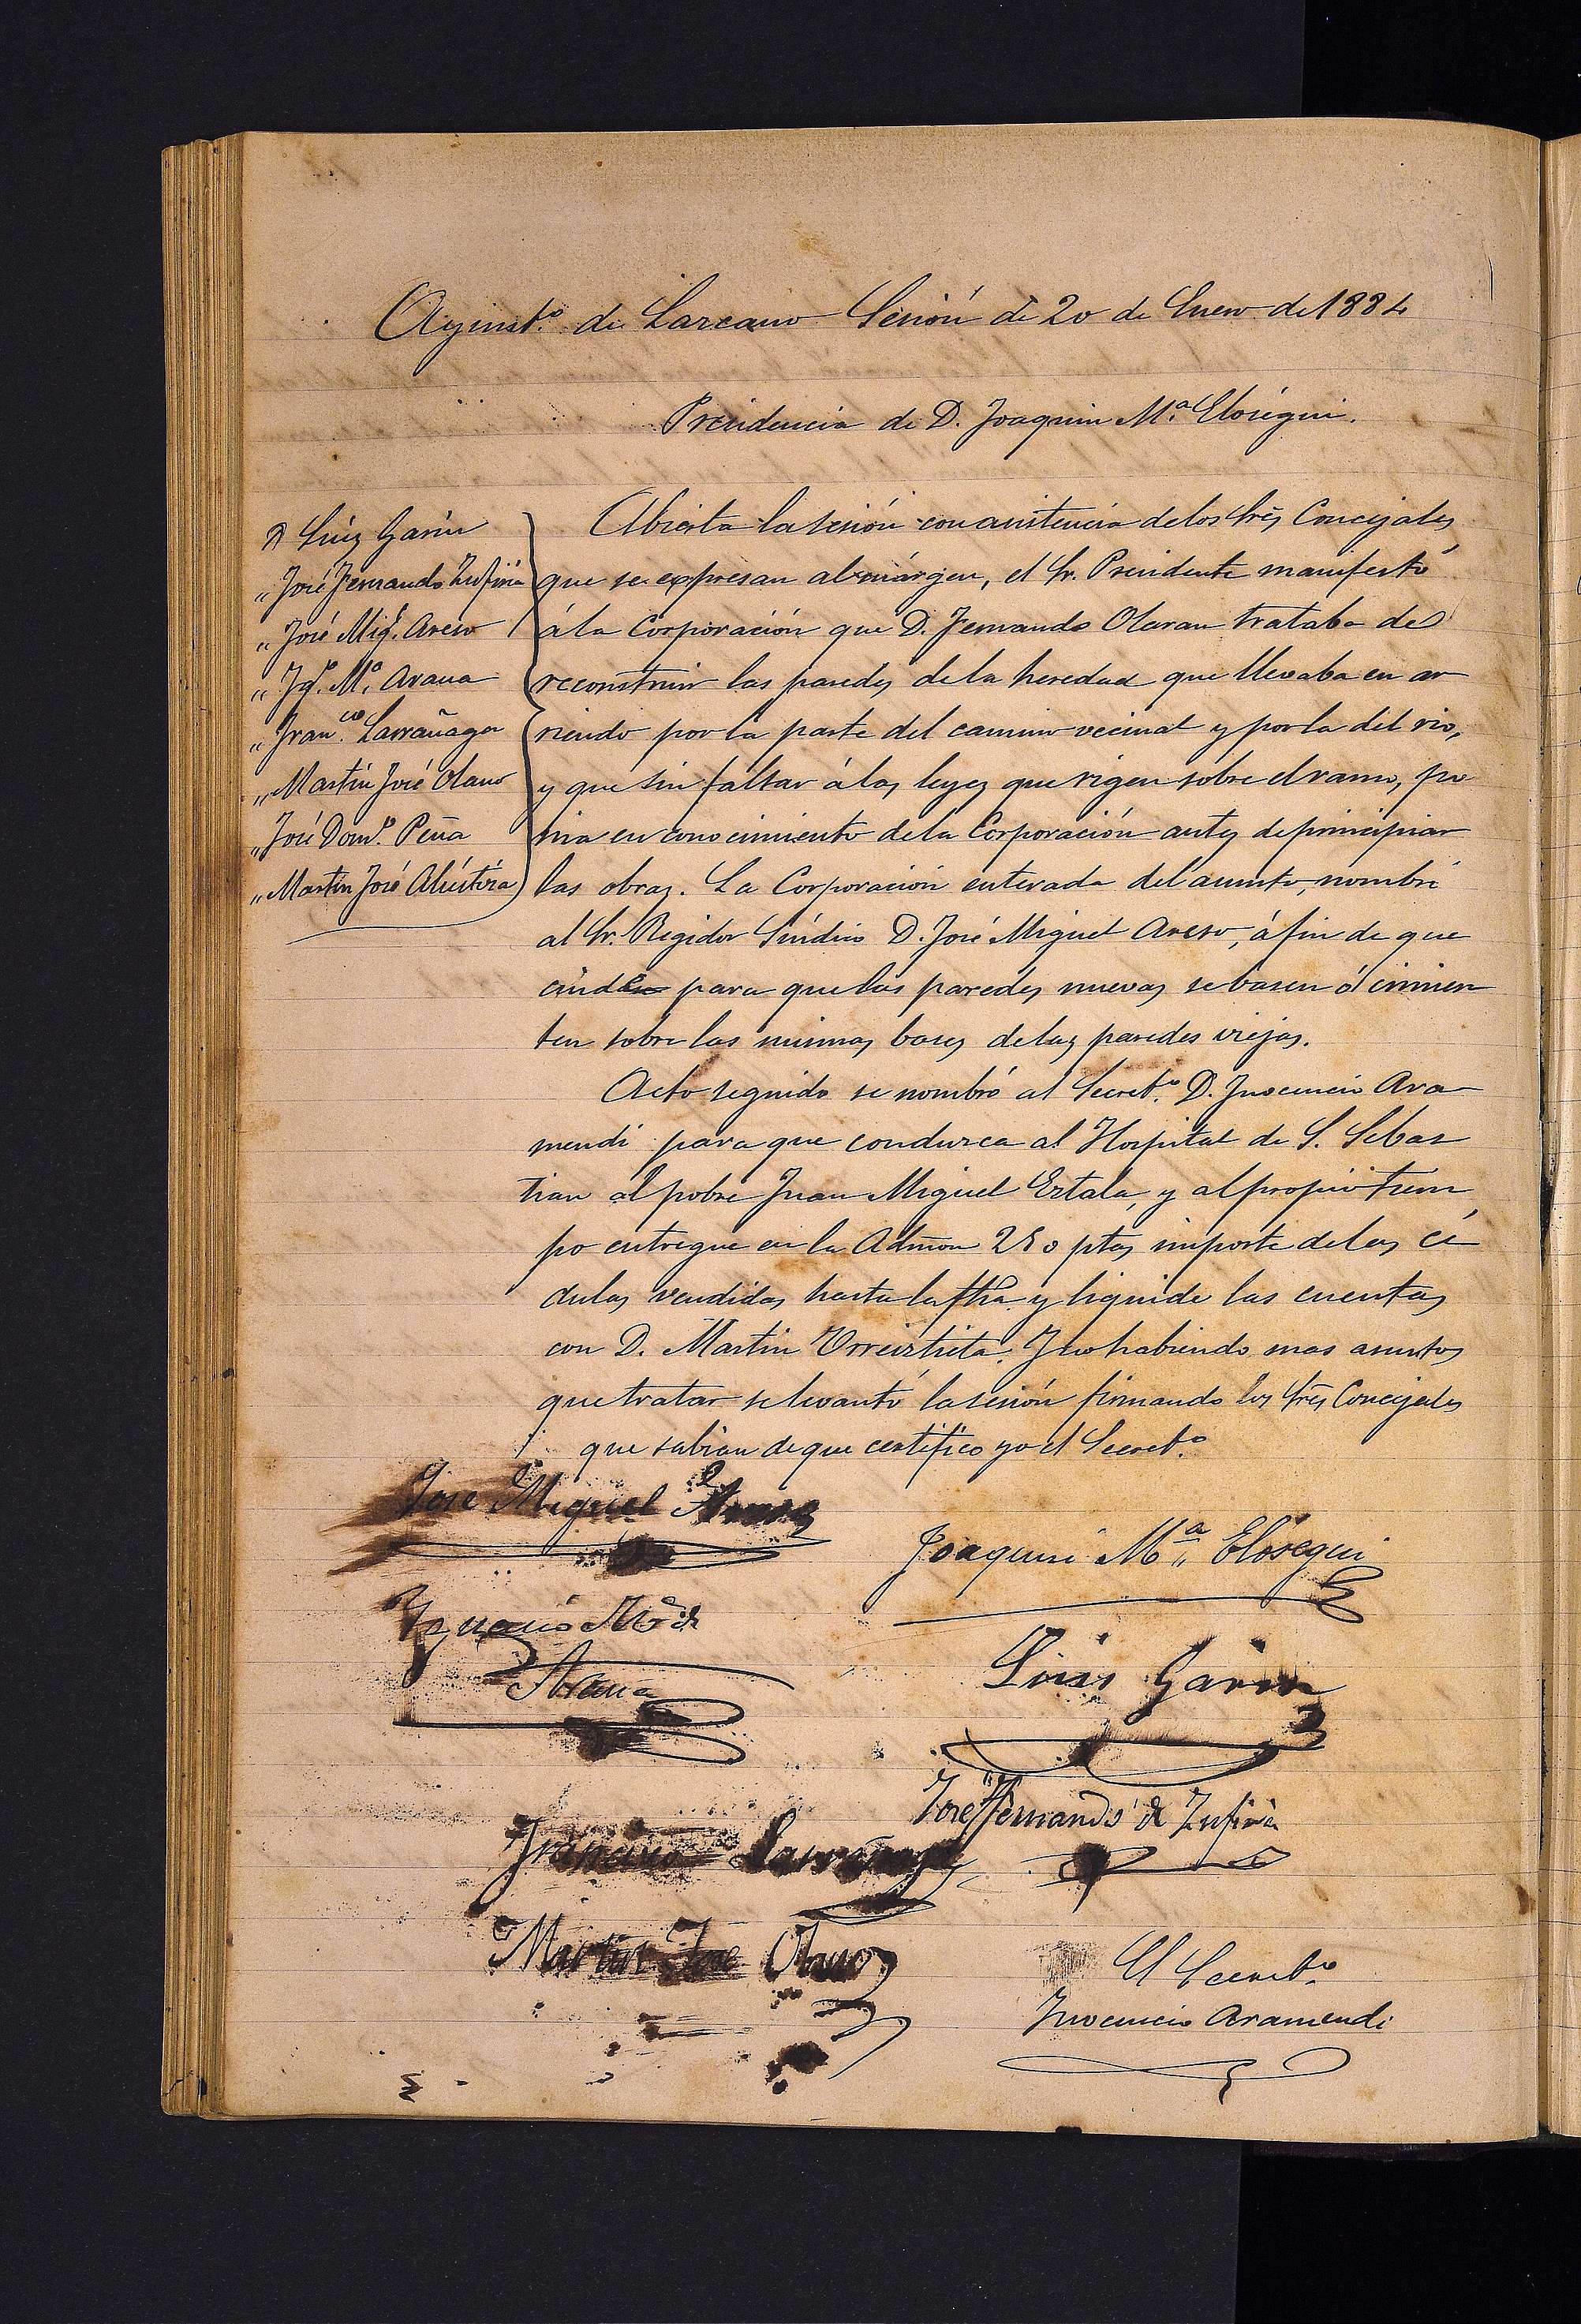 Ayunt.º de Lazcano Sesión de 20 de Enero de 1884
Presidencia de D. Joaquin M.ª Elosegui.
D Luis Garin
„ José Fernando Zufiria
„ José Mig.l Areso
„ Ig.º M.ª Arana
„ Fran.co Larrañaga
„ Martin José Olano
„ José Dom.º Peña
„ Martin José Alústiza
Abierta la sesión con asistencia de los Srēs Concejales
que se expresan al márgen, el Sr. Presidente manifestó
á la Corporación que D. Fernando Olaran trataba de
reconstruir las paredes de la heredad que llevaba en ar
riendo por la parte del camino vecinal y por la del rio,
y que sin faltar á las leyes que rigen sobre el ramo, po
nia en conocimiento de la Corporación antes de principiar
las obras. La Corporación enterada del asunto, nombró
al Sr. Regidor Síndico D. José Miguel Areso, á fin de que
cuide para que las paredes nuevas se basen ó cimien
ten sobre las mismas bases de las paredes viejas.
Acto seguido se nombró al Secret.º D. Inocencio Ara
mendi para que conduzca al Hospital de S. Sebas
tian al pobre Juan Miguel Eztala, y al propio tiem
po entregue en la Admon 250 ptas importe de las cé
dulas vendidas hasta la fha y liquide las cuentas
con D. Martin Urreiztieta. Y no habiendo mas asuntos
que tratar se levantó la sesión firmando los Srēs Concejales
que sabian de que certifico yo el Secret.º
José Miguel Areso
Joaquin M.ª Elosegui
Ignacio M.ª de
Arana
Luis Garin
José Fernando de Zufiria
Francisco Larrañaga
Martin José Olano
El Secret.º
Inocencio Aramendi